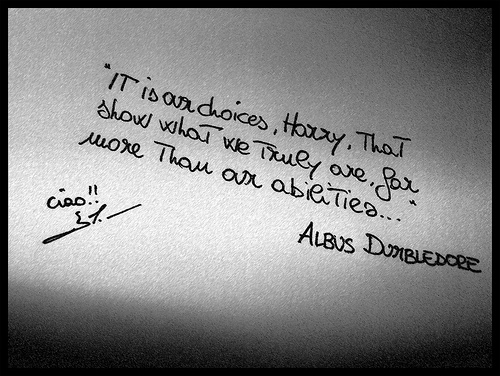 "IT is our choices, Harry, That
show what we Truly are, far
more Than our abiliTies..."
ALBUS DUMBLEDORE
ciao!!